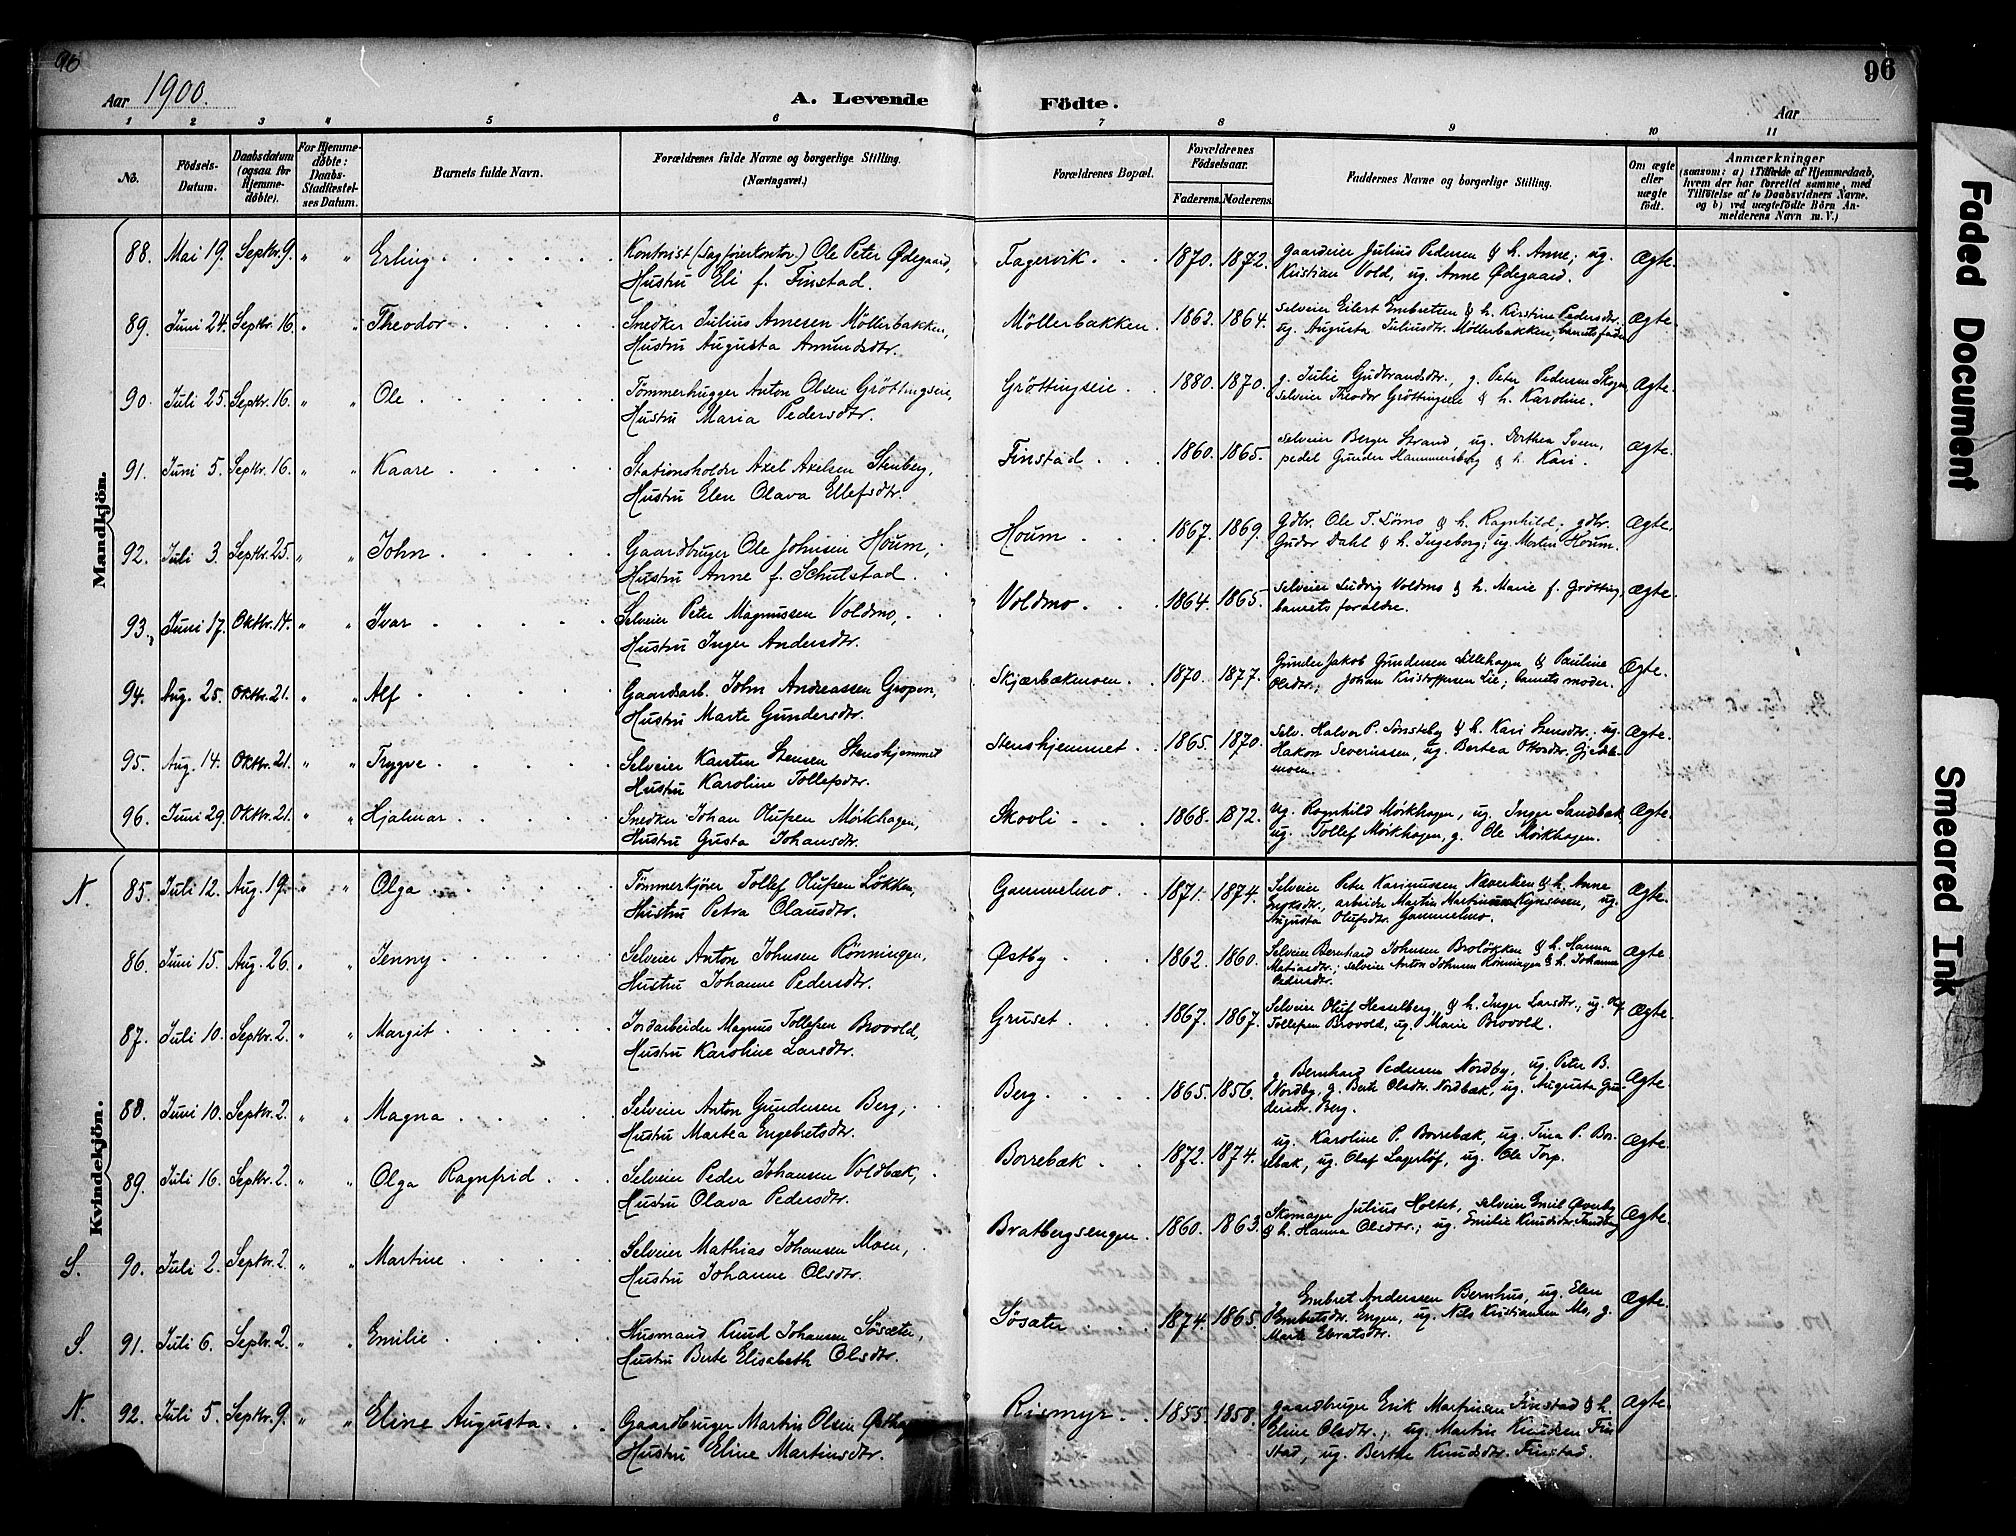 96
Aar 1900.
A. Levende Födte.
Aar
96
1 2 3 4 5 6 7 8 9 10 11
No.
Födsels-Datum.
Daabsdatum (ogsaa for Hjemme-döbte).
For Hjemme-döbte: Daabs-Stadfæstel-ses Datum.
Barnets fulde Navn.
Forældrenes fulde Navne og borgerlige Stilling. (Næringsvei.)
Forældrenes Bopæl.
Forældrenes Födselsaar.
Faderens. Moderens.
Faddernes Navne og borgerlige Stilling.
Om ægte eller uægte födt.
Anmærkninger
(saasom: a) i Tilfælde af Hjemmedaab, hvem der har forrettet samme, med Tilföielse af to Daabsvidners Navne. og b) ved uægtefödte Börn An-melderens Navn m. V.)
Mandkjön.
88. Mai 19. Septbr. 9. " " Erling
Kontorist (Sagförerkontor.) Ole Peter Ødegaard,
Hustru Eli f. Finstad.
Fagervik. 1870. 1872.
Gaardeier Julius Pedersen & h. Anne; ug.
Kristian Vold, ug. Anne Ødegaard.
Ægte.
89. Juni 24. Septbr. 16. " " Theodor
Snedker Julius Arnesen Möllerbakken,
Hustru Augusta Amundsdtr.
Möllerbakken. 1862. 1864.
Selveier Eilert Embretsen & h. Kirstine Pedersdtr.
ug. Augusta Juliusdtr. Möllerbakken, barnets fader
Ægte.
90. Juli 25. Septbr. 16. " " Ole
Tömmerhugger Anton Olsen Gröttingseie,
Hustru Maria Pedersdtr.
Gröttingseie. 1880. 1870.
g. Julie Gudbrandsdtr., g. Peter Pedersen Skogen,
Selveier Theodor Gröttingseie & h. Karoline.
Ægte.
91. Juni 5. Septbr. 16. " " Kaare
Stationsholder Axel Axelsen Stenberg,
Hustru Elen Olava Ellefsdtr.
Finstad. 1860. 1865.
Selveier Berger Strand, ug. Dorthea Sveen,
pedel Gunder Hammersberg & h. Kari.
Ægte.
92. Juli 3. Septbr. 25. " " John
Gaardbruger Ole Johnsen Houm,
Hustru Anne f. Schulstad.
Houm 1867. 1869.
Gdbr. Ole T. Sömo & h. Ragnhild; gdbr.
Gudor Dahl & h. Ingeborg; ug. Morten Houm.
Ægte.
93. Juni 17. Oktbr. 14. " " Ivar
Selveier Peter Magnussen Voldmo,
Hustru Inger Andersdtr.
Voldmo. 1864. 1865.
Selveier Ludvig Voldmo & h. Marie f. Grötting,
barnets forældre.
Ægte.
94. Aug. 25. Oktbr. 21. " " Alf
Gaardsarb. John Andreassen Gropen,
Hustru Marte Gundersdtr.
Skjærbækmoen. 1870. 1877.
Gunder Jakob Gundersen Lillehagen & Pauline
Olsdtr.; Johan Kristoffersen Lie; barnets moder.
Ægte.
95. Aug. 14. Oktbr. 21. " " Trygve
Selveier Karsten Stensen Stenshjemmet
Hustru Karoline Tollefsdtr.
Stenshjemmet. 1865. 1870.
Selv. Halvor P. Sönsteby & h. Kari Stensdtr.; ug.
Hakon Severinssen, ug. Bertea Ottersdtr.
moen.
Ægte.
96. Juni 29. Oktbr. 21. " " Hjalmar
Snedker Johan Olufsen Mörkhagen,
Hustru Gusta Johansdtr.
Skovli 1868. 1872.
ug. Ragnhild Mörkhagen, ug. Inger Sandbæk
ug. Tollef Mörkhagen, g. Ole Mörkhagen.
Ægte.
Kvindekjön.
N. 85. Juli 12. Aug. 19. " " Olga
Tömmerkjörer Tollef Olufsen Lökken,
Hustru Petra Olausdtr.
Gammelmo 1871. 1874.
Selveier Peter Karinussen Næverlien & h. Anne
arbeider Martin Martinussen ug.
Augusta Olufsdtr. Gammelmo.
Ægte.
86. Juni 15. Aug. 26. " " Jenny
Selveier Anton Johnsen Rönningen,
Hustru Johanne Pedersdtr.
Østby 1862. 1860.
Selveier Bernhard Johnsen Brolökken & h. Hanna
Matiasdtr.; selveier Anton Johnsen Rönningen & h. Johanne
Pedersdtr.
Ægte.
87. Juli 10. Septbr. 2. " " Margit
Jordarbeider Magnus Tollefsen Brovold,
Hustru Karoline Larsdtr.
Gruset 1867. 1867.
Selveier Oluf Hesselberg, & h. Inger Larsdtr.; ug. Olaf
Tollefsen Brovold, ug. Marie Brovold.
Ægte.
88. Juni 10. Septbr. 2. " " Magna
Selveier Anton Gundersen Berg,
Hustru Martea Engebretsdtr.
Berg 1865. 1856.
g. Bernhard Pedersen Nordby, ug. Peter B.
Nordby, g. Berte Olsdtr. Nordbæk, ug. Augusta Gun-
dersdtr. Berg.
Ægte.
89. Juli 16. Septbr. 2. " " Olga Ragnfrid
Selveier Peder Johansen Voldbæk,
Hustru Olava Pedersdtr.
Borrebæk 1872. 1874.
ug. Karoline P. Borrebæk, ug. Tina P. Bor-
rebæk, ug. Olaf Lagerlöf, ug. Ole Torp.
Ægte.
S. 90. Juli 2. Septbr. 2. " " Martine
Selveier Mathias Johansen Moen,
Hustru Johanne Olsdtr.
Bratbergsengen. 1860. 1863.
Skomager Julius Holtet, selveier Emil Øverby
& h. Hanna Olsdtr.; ug. Emilie Knudsdtr. Tandberg
Ægte.
S. 91. Juli 6. Septbr. 2. " " Emilie
Husmand Knud Johansen Søsæter,
Hustru Berte Elisabeth Olsdtr.
Søsæter 1874. 1865.
g. Embret Anderssen Bernhus, ug. Elen
Embretsdtr. Engen, ug. Nils Kristiansen Mo, g.
Marte
Ægte.
N. 92. Juli 5. Septbr. 9. " " Eline Augusta
Gaardbruger Martin Olsen Østhag
Hustru Eline Martinsdtr.
Rismyr 1855. 1858.
gaardbruger Erik Martinsen Finstad & h.
Eline Olsdtr.; ug. Martin Knudsen Fin-
stad, ug. Berthe Knudsdtr. Finstad.
Ægte.
Faded Document
Smeared Ink